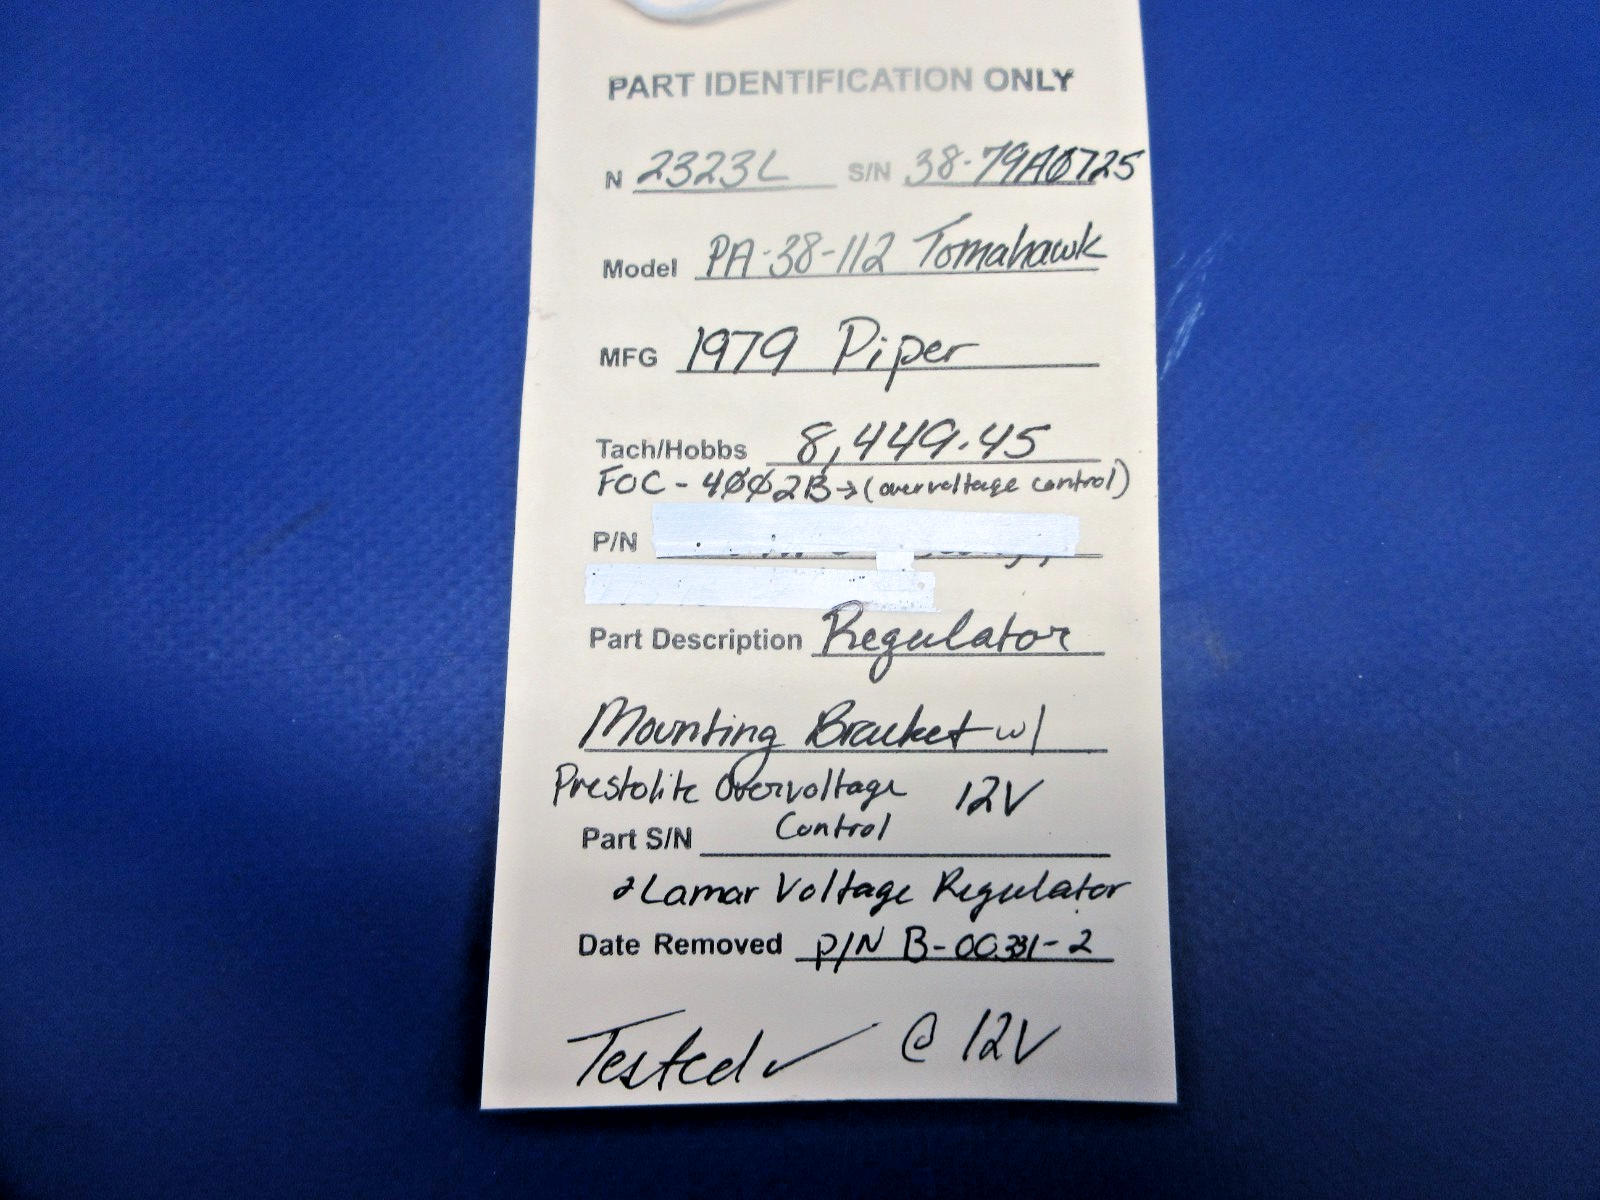 PART IDENTIFICATION ONLY
N 2323L S/N 38-79A0725
Model PA-38-112 Tomahawk
MFG 1979 Piper
Tach/Hobbs 8,449.45
FOC-4002B→(overvoltage control)
P/N
Part Description Regulator
Mounting Bracket w/
Prestolite Overvoltage 12V
Control
Part S/N
Lamar Voltage Regulator
Date Removed P/N B-00331-2
Tested ✓ @ 12V